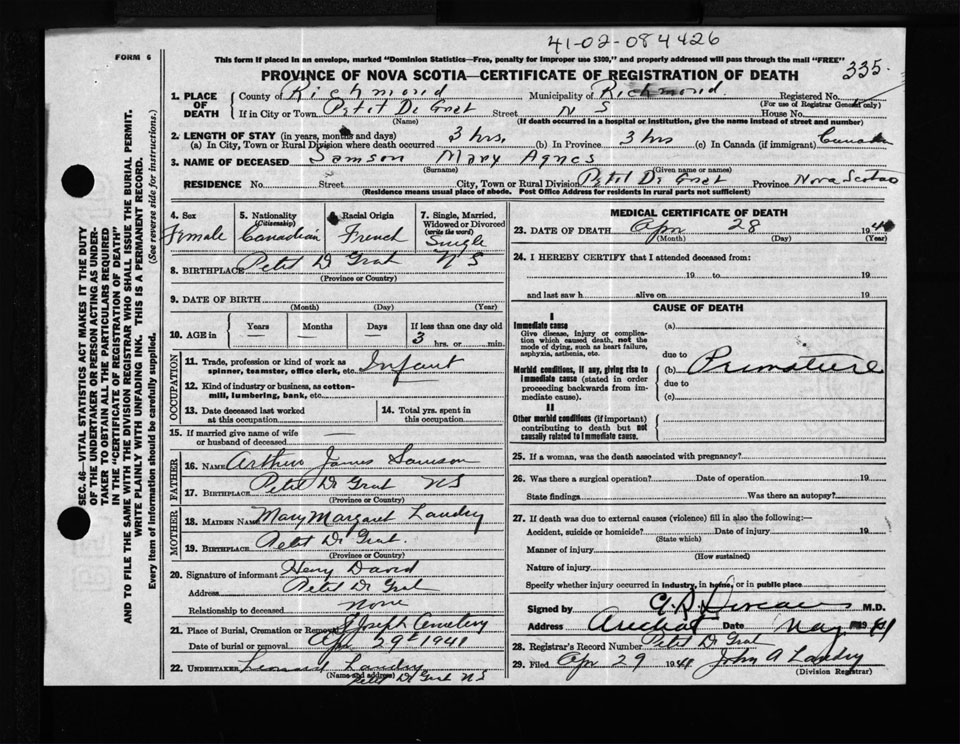 41-02-084426
FORM 6
This form if placed in an envelope, marked "Dominion Statistics—Free, penalty for improper use $300," and properly addressed will pass through the mail "FREE"
335.
PROVINCE OF NOVA SCOTIA—CERTIFICATE OF REGISTRATION OF DEATH
1. PLACE OF DEATH
County of Richmond Municipality of Richmond Registered No.
(For use of Registrar General only)
If in City or Town Petit De Grat Street N S House No.
(Name) (If death occurred in a hospital or institution, give the name instead of street and number)
2. LENGTH OF STAY (in years, months and days)
(a) In City, Town or Rural Division where death occurred 3 hrs, (b) In Province 3 hrs (c) In Canada (if immigrant) Canada
3. NAME OF DECEASED Samson Mary Agnes
(Surname) (Given name or names)
RESIDENCE No. Street City, Town or Rural Division Petit De Grat Province Nova Scotia
(Residence means usual place of abode. Post Office Address for residents in rural parts not sufficient)
4. Sex
Female
5. Nationality
(Citizenship)
Canadian
6. Racial Origin
French
7. Single, Married, Widowed or Divorced
(write the word)
Single
8. BIRTHPLACE Petit D Grat N S
(Province or Country)
9. DATE OF BIRTH
(Month) (Day) (Year)
10. AGE in
Years Months Days If less than one day old
3 hrs. or min.
OCCUPATION
11. Trade, profession or kind of work as spinner, teamster, office clerk, etc. Infant
12. Kind of industry or business, as cotton-mill, lumbering, bank, etc.
13. Date deceased last worked at this occupation
14. Total yrs. spent in this occupation
15. If married give name of wife or husband of deceased
FATHER
16. NAME Arthur James Samson
17. BIRTHPLACE Petit D Grat NS
(Province or Country)
MOTHER
18. MAIDEN NAME Mary Margaret Landry
19. BIRTHPLACE Petit D Grat.
(Province or Country)
20. Signature of informant Henry David
Address Petit D Grat
Relationship to deceased None
21. Place of Burial, Cremation or Removal St Joseph Cemetery
Date of burial or removal Apr 29th 1941
22. UNDERTAKER Leonard Landry
(Name and address)
Petit D Grat NS
MEDICAL CERTIFICATE OF DEATH
23. DATE OF DEATH Apr 28 1941
(Month) (Day) (Year)
24. I HEREBY CERTIFY that I attended deceased from:
19 to 19
and last saw h alive on 19
CAUSE OF DEATH
I
Immediate cause
Give disease, injury or complication which caused death, not the mode of dying, such as heart failure, asphyxia, asthenia, etc.
(a)
due to
Morbid conditions, if any, giving rise to immediate cause (stated in order proceeding backwards from immediate cause).
(b) Premature
due to
(c)
II
Other morbid conditions (if important) contributing to death but not causally related to immediate cause.
25. If a woman, was the death associated with pregnancy?
26. Was there a surgical operation? Date of operation 19
State findings Was there an autopsy?
27. If death was due to external causes (violence) fill in also the following:—
Accident, suicide or homicide? Date of injury 19
(State which)
Manner of injury
(How sustained)
Nature of injury
Specify whether injury occurred in industry, in home, or in public place
Signed by M.D.
Address Arichat Date May 1941
28. Registrar's Record Number Petit D Grat
29. Filed Apr 29 1941 John A Landry
(Division Registrar)
SEC. 46—VITAL STATISTICS ACT MAKES IT THE DUTY
OF THE UNDERTAKER OR PERSON ACTING AS UNDER-
TAKER TO OBTAIN ALL THE PARTICULARS REQUIRED
IN THE "CERTIFICATE OF REGISTRATION OF DEATH"
AND TO FILE THE SAME WITH THE DIVISION REGISTRAR WHO SHALL ISSUE THE BURIAL PERMIT.
WRITE PLAINLY WITH UNFADING INK. THIS IS A PERMANENT RECORD.
Every item of information should be carefully supplied. (See reverse side for instructions.)